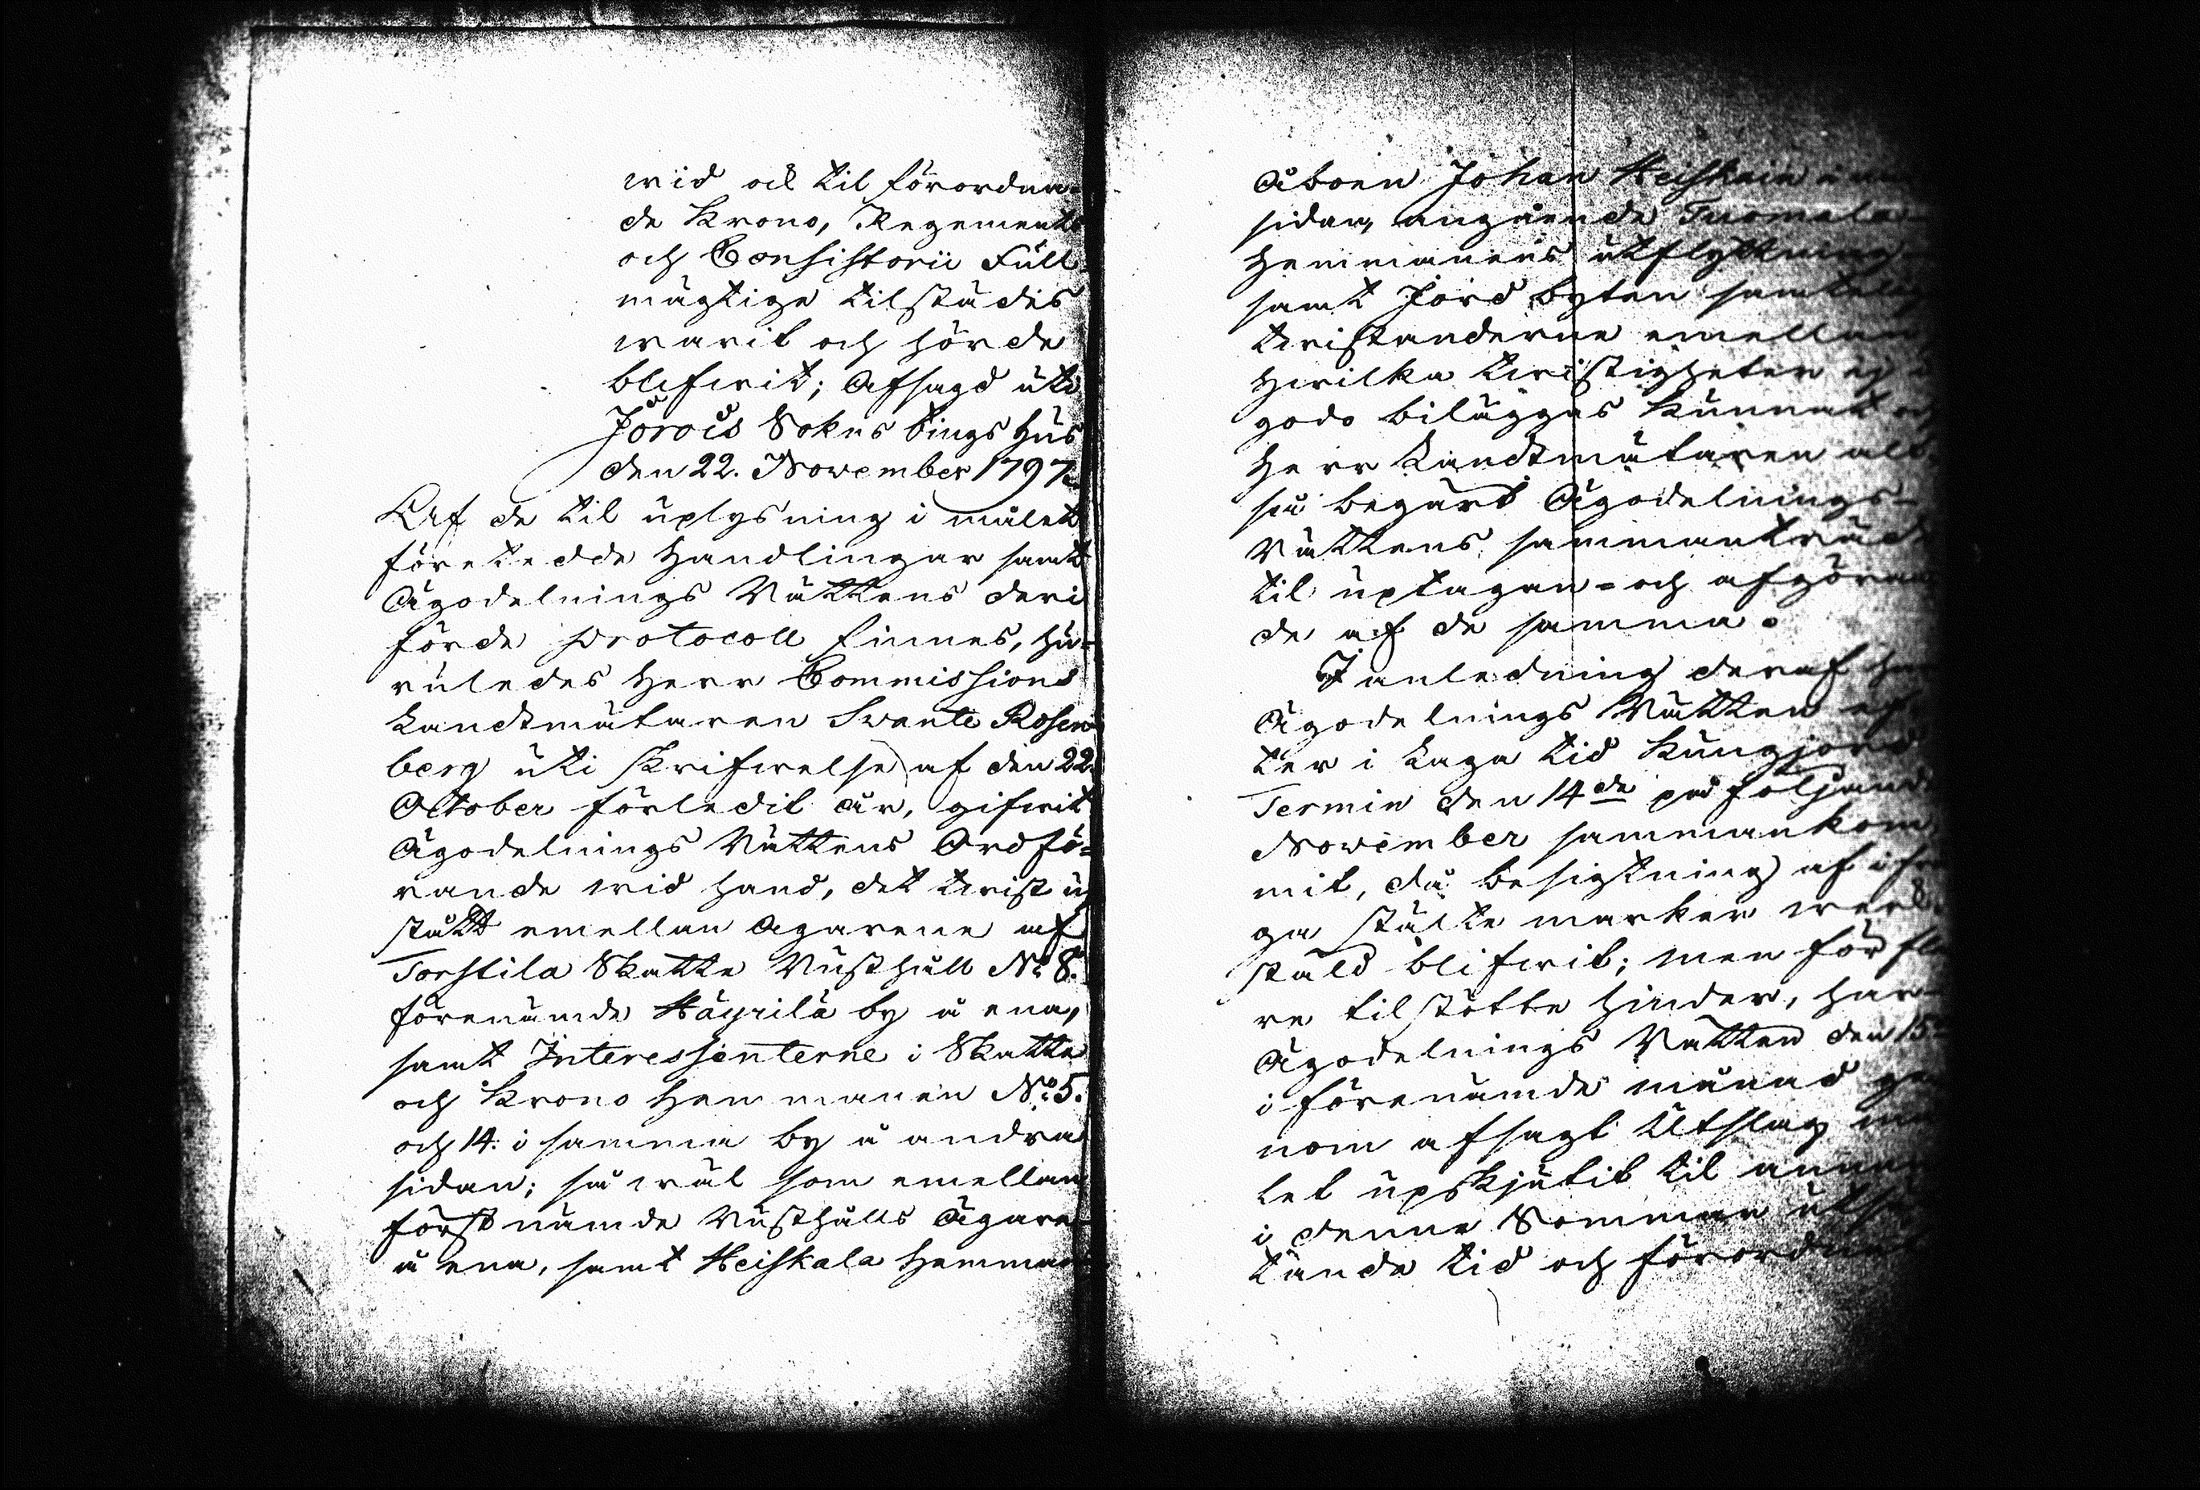 wid ock til förordna-
de Krono, Regements
och Consistorii Full-
mägtige tilstädes
warit och hörde
blifwit; Afsagd uti
Jorois Sokns Tings Hus
den 22. November 1797.
Af de til uplysning i målet
företedde Handlingar samt
Ägodelnings Rättens deri
förde Protocoll finnes, hu-
ruledes Herr Commissions
Landtmätaren Swante Rosen-
berg uti Skrifwelse af den 22.
October förledit år, gifwit
Ägodelnings Rättens Ordfö-
rande wid hand, det twist up
stått emellan Ägarene af
Torstila Skatte Rusthåll No 8.
förenämde Häyrilä by å ena,
samt Interessenterne i Skatte
och Krono Hemmanen No 5.
och 14. i samma by å andra
sidan; så wäl som emellan
förstnämde Rusthålls Ägare
å ena, samt Heiskala Hemmans
Åboen Johan Heiskain å
sidan, angående Tuomala
Hemmanens utflyttning
samt Jord byten samtelig
twistanderne emellan
Hwilka twistigheter ej i
godo biläggas kunnat och
Herr Landtmätaren alt-
så begärt Ägodelnings-
Rättens sammanträde
til uptagan- och afgöran
de af de samma.
I anledning deraf har
Ägodelnings Rätten ef
ter i laga tid kungjord
Termin den 14de påföljande
November sammankom-
mit, då besigtning af ifrå
ga stälte marker werk-
stäld blifwit; men för fle
re tilstötte hinder, har
Ägodelnings Rätten den 15
i förenämde månad ge
nom afsagt Utslag må
let upskjutit til annan
i denne Sommar utsä
tande tid och förordnat